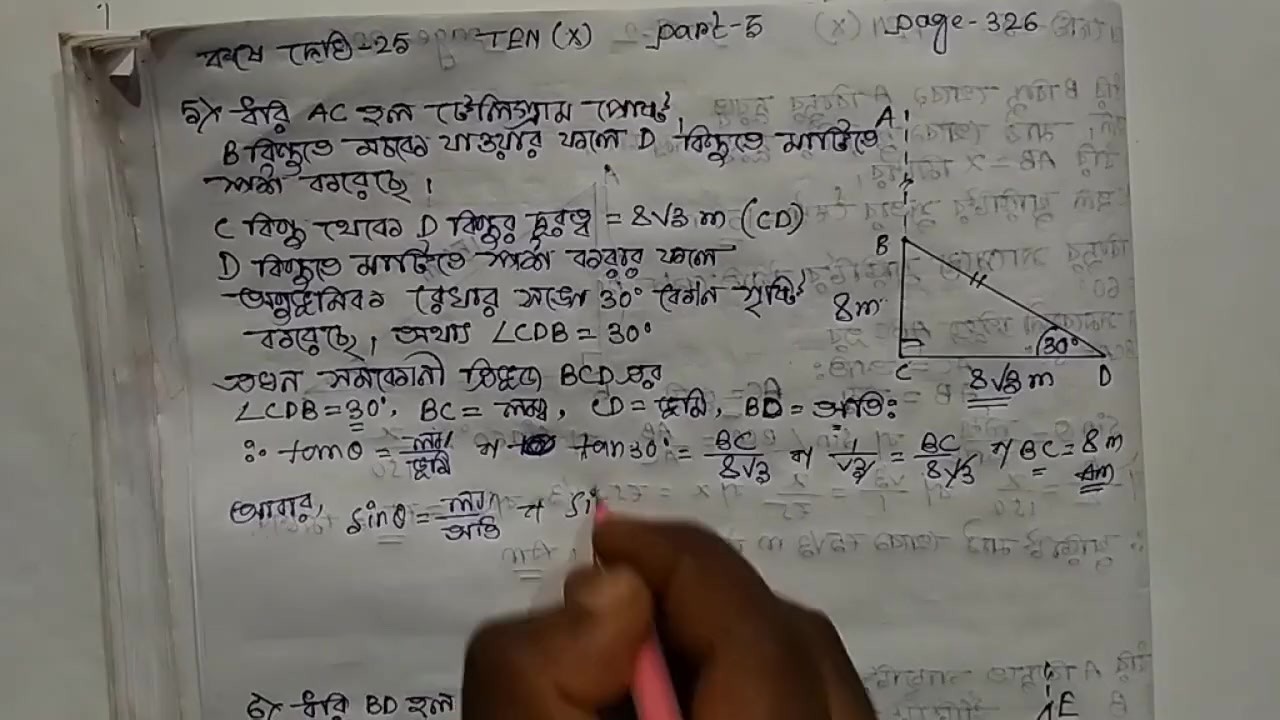 কষে দেখি-25 TEN (X) part-5 page-326
5) ধরি AC হল টেলিগ্রাম পোষ্ট,
B বিন্দুতে মচকে যাওয়ার ফলে D বিন্দুতে মাটিতে
স্পর্শ করেছে।
C বিন্দু থেকে D বিন্দুর দূরত্ব = 8√3 m (CD)
D বিন্দুতে মাটিতে স্পর্শ করার ফলে
অনুভূমিক রেখার সঙ্গে 30° কোণ সৃষ্টি
করেছে, অর্থাৎ ∠CDB = 30°
এখন সমকোণী ত্রিভুজ BCD এর
∠CDB = 30°, BC = লম্ব, CD = ভূমি, BD = অতিঃ
∴ tanθ = লম্ব/ভূমি বা tan30° = BC/8√3 বা 1/√3 = BC/8√3 বা BC = 8 m
আবার, sinθ = লম্ব/অতি বা si
6) ধরি BD হল
A
B
8m
30°
C
8√3 m
D
E